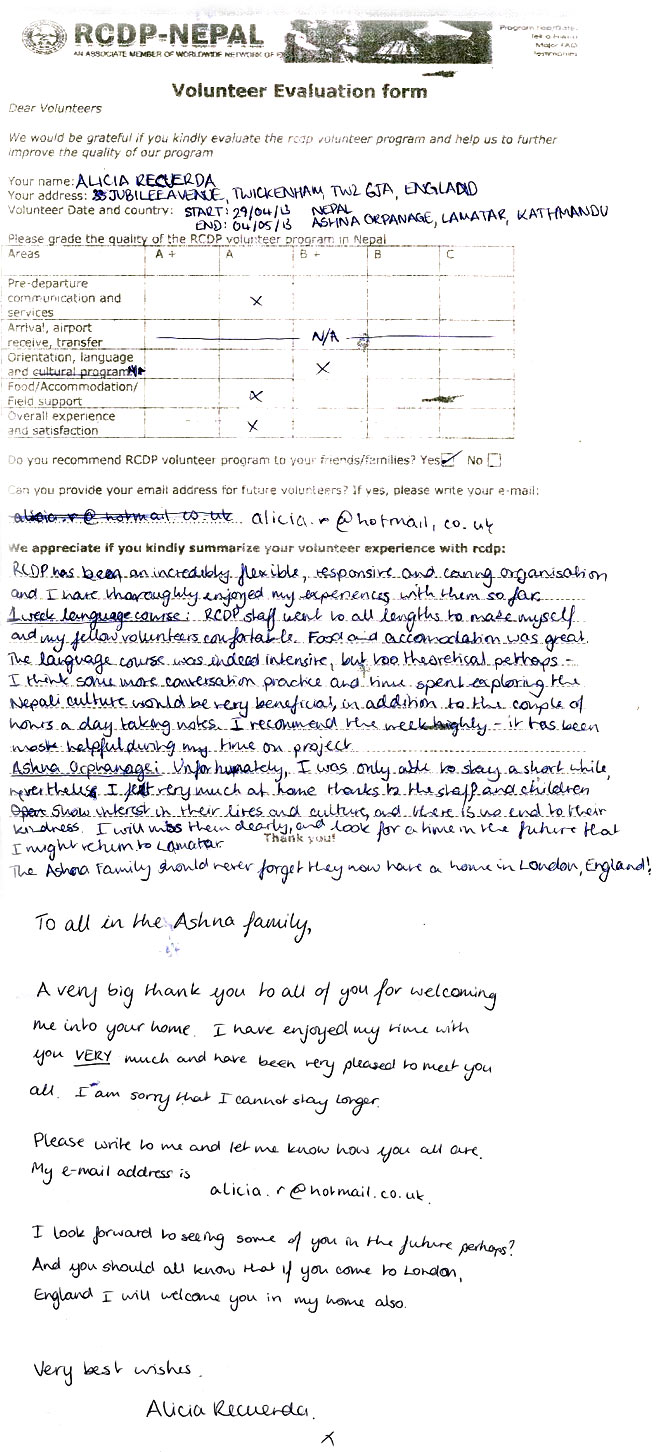 RCDP-NEPAL
AN ASSOCIATE MEMBER OF WORLDWIDE NETWORK OF
Major FAQ
Testimonies
Volunteer Evaluation form
Dear Volunteers
We would be grateful if you kindly evaluate the rcdp volunteer program and help us to further
improve the quality of our program
Your name: ALICIA RECUERDA
Your address: JUBILEE AVENUE, TWICKENHAM, TW2 6JA, ENGLAND
Volunteer Date and country: START: 29/04/13 NEPAL
END: 04/05/13 ASHNA ORPANAGE, LAMATAR, KATHMANDU
Please grade the quality of the RCDP volunteer program in Nepal
Areas A + A B + B C
Pre-departure
communication and X
services
Arrival, airport
receive, transfer N/A
Orientation, language X
and cultural program N/A
Food/Accommodation/
Field support X
Overall experience
and satisfaction X
Do you recommend RCDP volunteer program to your friends/families? Yes ✓ No
Can you provide your email address for future volunteers? If yes, please write your e-mail:
alicia.r@hotmail.co.uk alicia.r@hotmail.co.uk
We appreciate if you kindly summarize your volunteer experience with rcdp:
RCDP has been an incredibly flexible, responsive and caring organisation
and I have thoroughly enjoyed my experiences with them so far.
1 week language course: RCDP staff went to all lengths to make myself
and my fellow volunteers comfortable. Food and accomodation was great.
The language course was indeed intensive, but too theoretical perhaps -
I think some more conversation practice and time spent exploring the
Nepali culture would be very beneficial, in addition to the couple of
hours a day taking notes. I recommend the week highly - it has been
most helpful during my time on project.
Ashna Orphanage: Unfortunately, I was only able to stay a short while,
nevertheless I felt very much at home thanks to the staff and children
Show interest in their lives and culture, and there is no end to their
kindness. I will miss them dearly, and look for a time in the future that
I might return to Lamatar.
Thank you!
The Ashna Family should never forget they now have a home in London, England!
To all in the Ashna family,
A very big thank you to all of you for welcoming
me into your home. I have enjoyed my time with
you VERY much and have been very pleased to meet you
all. I am sorry that I cannot stay longer.
Please write to me and let me know how you all are.
My e-mail address is
alicia.r@hotmail.co.uk.
I look forward to seeing some of you in the future perhaps?
And you should all know that if you come to London,
England I will welcome you in my home also.
Very best wishes.
Alicia Recuerda.
X